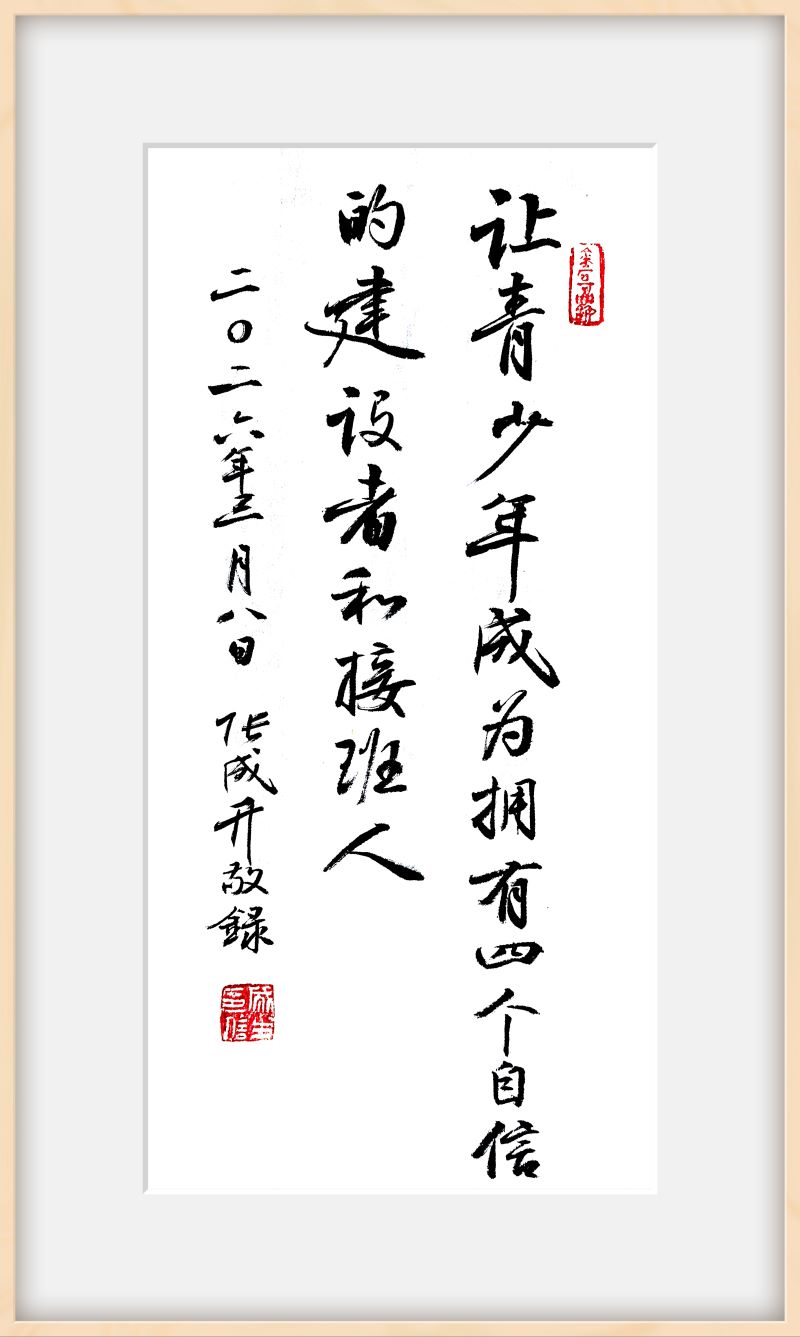 让青少年成为拥有四个自信
的建设者和接班人
二〇二六年三月八日 张成开敬録